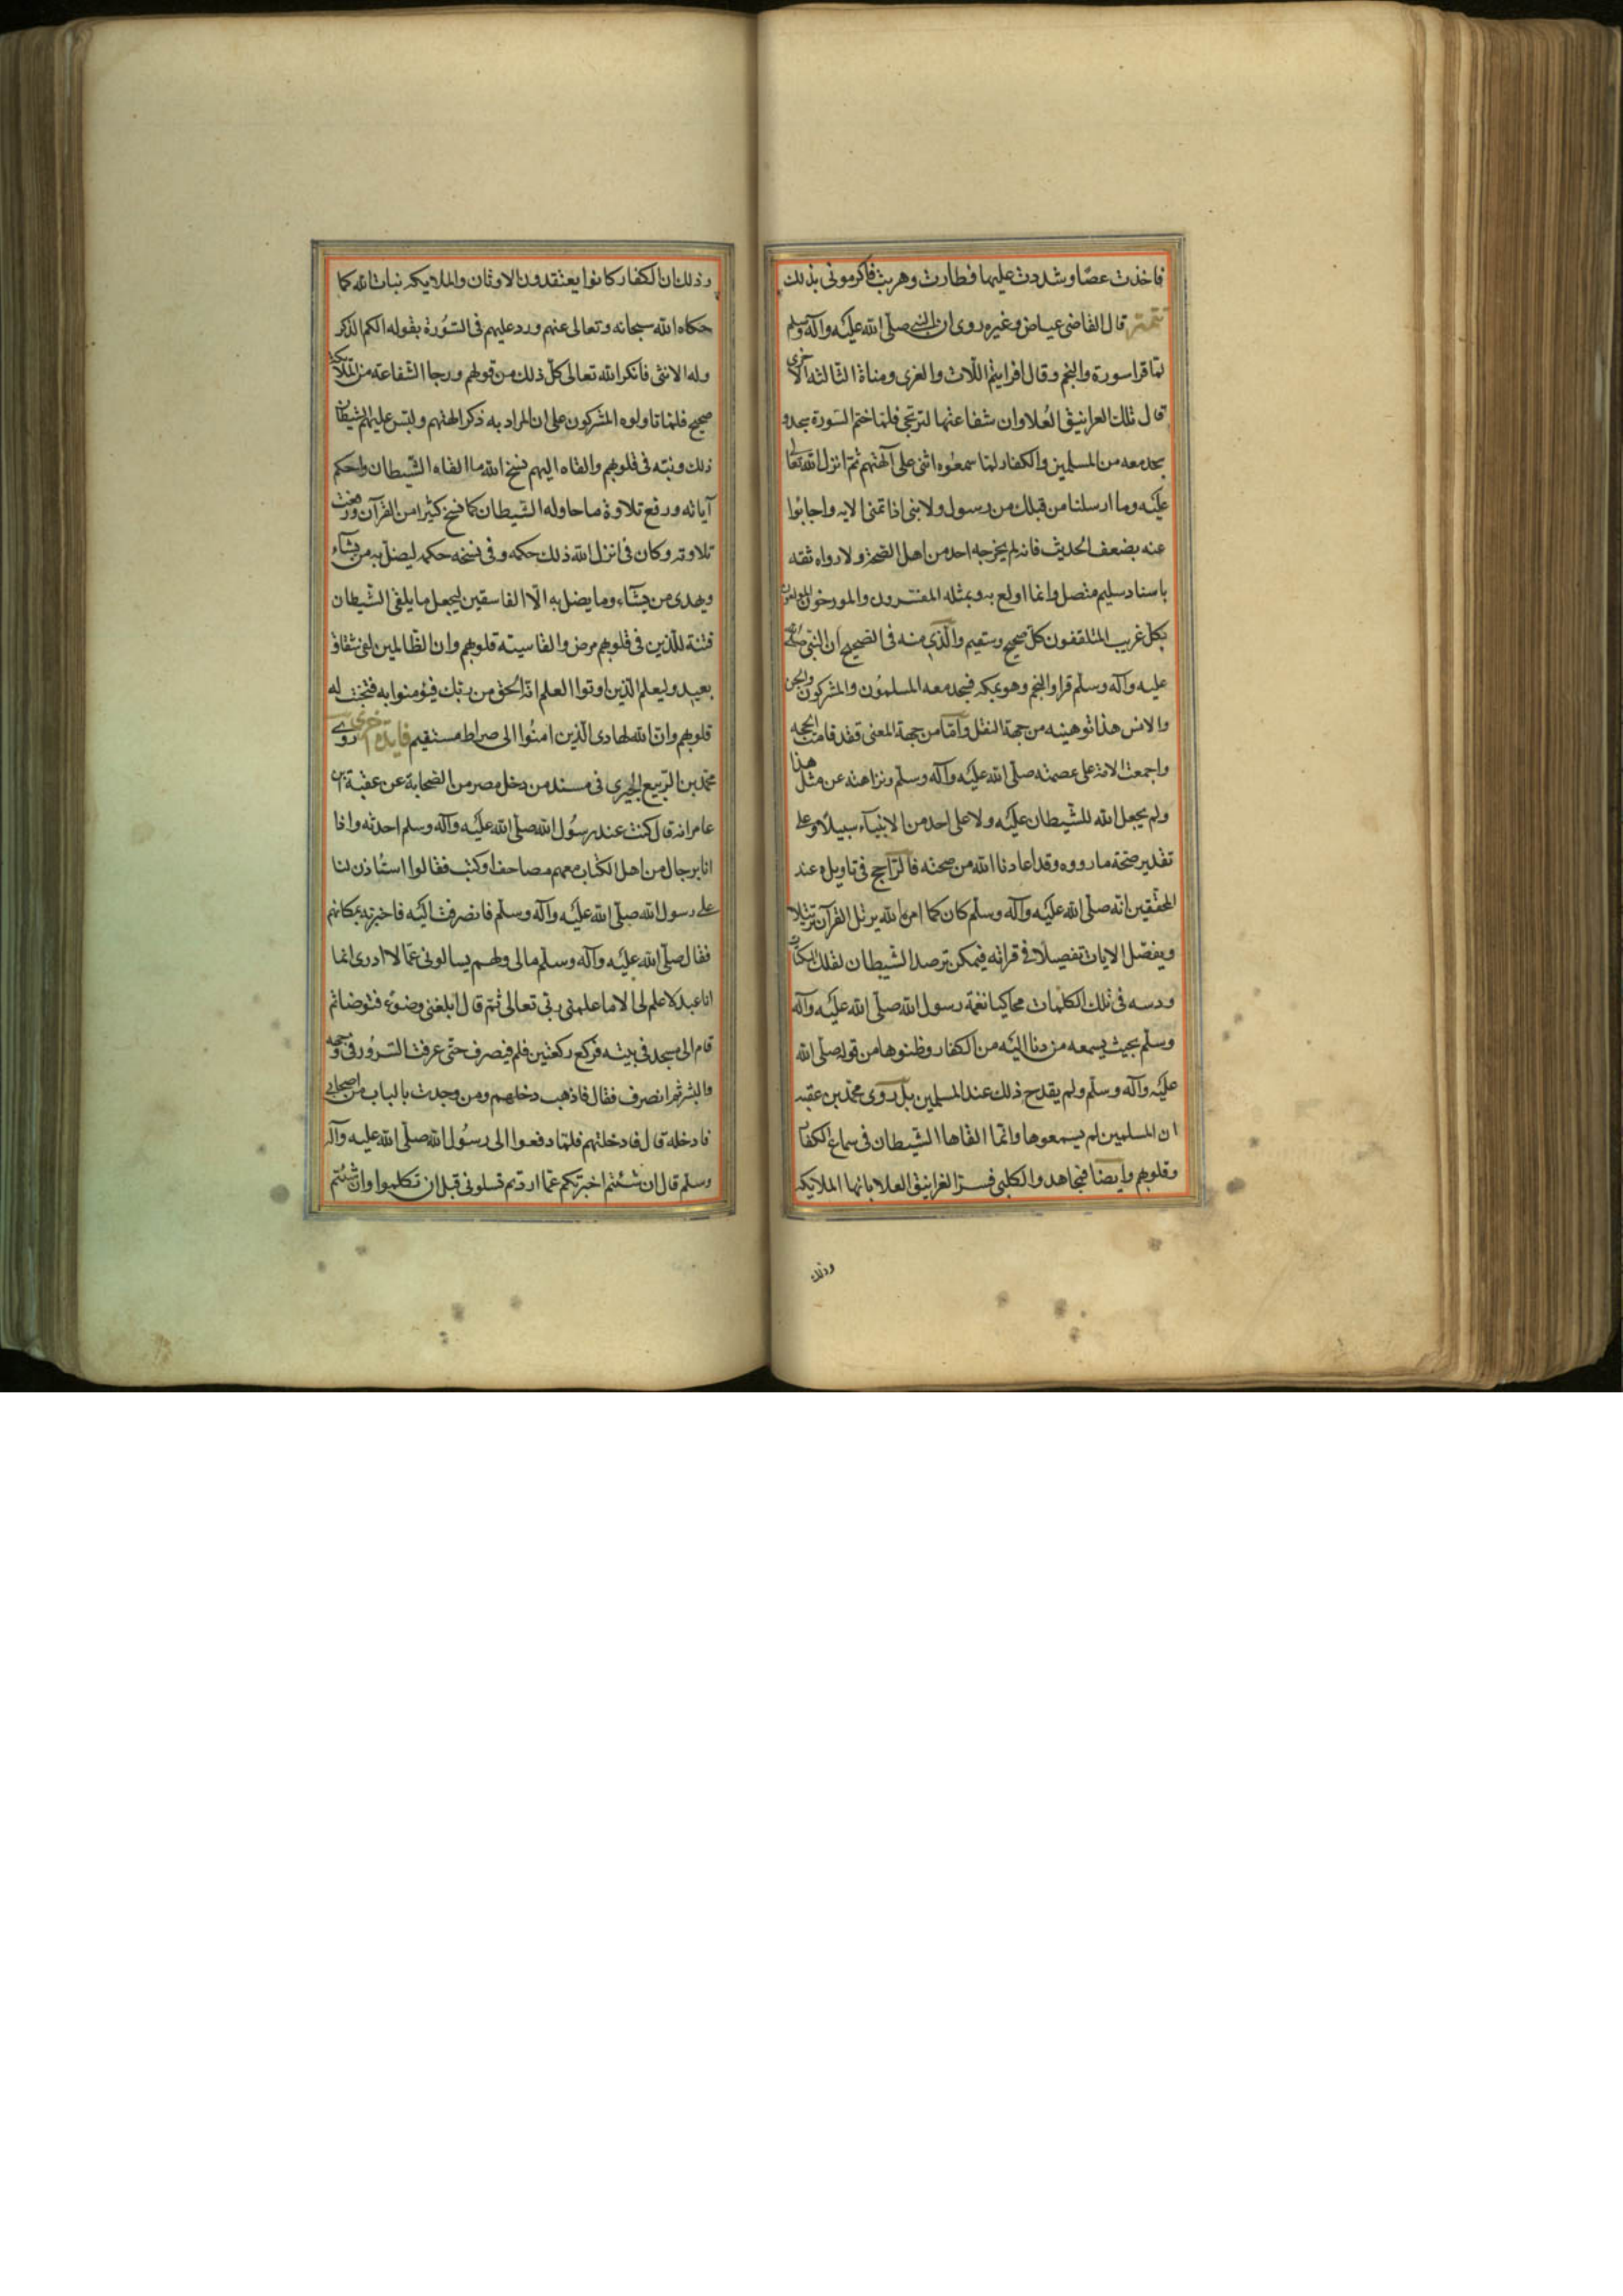 فاخذت عصا وشددت عليها فطارت وهربت فاكرمونى بذلك
تتمة قال القاضى عياض وغيره روى ان النبى صلى الله عليه وآله وسلم
لما قرا سورة والنجم وقال افرايتم اللات والعزى ومناة الثالثة الاخرى
قال تلك الغرانيق العلا وان شفاعتها لترتجى فلما ختم السورة سجد و
سجد معه من المسلمين والكفار لما سمعوه اثنى على آلهتهم ثم انزل الله تعالى
عليه وما ارسلنا من قبلك من رسول ولا نبى اذا تمنى الاية واجابوا
عنه بضعف الحديث فانه لم يخرجه احد من اهل الصحة ولا رواه ثقة
باسناد سليم متصل وانما اولع به وبمثله المفسرون والمورخون المولعون
بكل غريب المتلقفون كل صحيح وسقيم والذى منه فى الصحيح ان النبى صلى الله
عليه وآله وسلم قرا والنجم وهو بمكة فسجد معه المسلمون والمشركون والجن
والانس هذا توهينه من جهة النقل واما من جهة المعنى فقد قامت الحجة
واجمعت الامة على عصمته صلى الله عليه وآله وسلم ونزاهته عن مثل هذا
ولم يجعل الله للشيطان عليه ولا على احد من الانبياء سبيلا وعلى
تقدير صحة ما رووه وقد اعاذنا الله من صحته فالراجح فى تاويله عند
المحققين انه صلى الله عليه وآله وسلم كان كما امره الله يرتل القرآن ترتيلا
ويفصل الايات تفصيلا فى قراته فيمكن ترصد الشيطان لتلك السكتات
ودسه فى تلك الكلمات محاكيا نغمة رسول الله صلى الله عليه وآله
وسلم بحيث يسمعه من دنا اليه من الكفار وظنوها من قوله صلى الله
عليه وآله وسلم ولم يقدح ذلك عند المسلمين بل روى محمد بن عقبه
ان المسلمين لم يسمعوها وانما القاها الشيطان فى سماع الكفار
وقلوبهم وايضا فمجاهد والكلبى فسرا الغرانيق العلا بانها الملايكة
وذلك
وذلك ان الكفار كانوا يعتقدون الاوثان والملايكة بنات الله كما
حكاه الله سبحانه وتعالى عنهم ورد عليهم فى السورة بقوله الكم الذكر
وله الانثى فانكر الله تعالى كل ذلك من قولهم ورجا الشفاعة من الملائكة
صحيح فلما تاولوه المشركون على ان المراد به ذكر الهتهم ولبس عليهم الشيطان
ذلك وزينه فى قلوبهم والقاه اليهم نسخ الله ما القاه الشيطان واحكم
آياته ورفع تلاوة ما حاوله الشيطان كما نسخ كثيرا من القرآن ورفعت
تلاوته وكان فى انزل الله ذلك حكمة وفى نسخه حكمة ليضل به من يشاء
ويهدى من يشاء وما يضل به الا الفاسقين ليجعل ما يلقى الشيطان
فتنة للذين فى قلوبهم مرض والقاسية قلوبهم وان الظالمين لفى شقاق
بعيد وليعلم الذين اوتوا العلم انه الحق من ربك فيؤمنوا به فتخبت له
قلوبهم وان الله لهادى الذين امنوا الى صراط مستقيم فايدة اخرى روى
محمد بن الربيع الجيزى فى مسند من دخل مصر من الصحابة عن عقبة بن
عامر انه قال كنت عند رسول الله صلى الله عليه وآله وسلم احدثه واذا
انا برجال من اهل الكتاب معهم مصاحف او كتب فقالوا استاذن لنا
على رسول الله صلى الله عليه وآله وسلم فانصرفت اليه فاخبرته بمكانهم
فقال صلى الله عليه وآله وسلم مالى ولهم يسالونى عما لا ادرى انما
انا عبد لا علم لى الا ما علمنى ربى تعالى ثم قال ابلغنى وضوء فتوضا ثم
قام الى مسجد فى بيته فركع ركعتين فلم ينصرف حتى عرفت السرور فى وجهه
والبشر ثم انصرف فقال فاذهب دخلهم ومن وجدت بالباب من اصحابى
فادخله قال فادخلتهم فلما دفعوا الى رسول الله صلى الله عليه وآله
وسلم قال ان شئتم اخبرتكم عما اردتم تسلونى قبل ان تكلموا وان شئتم